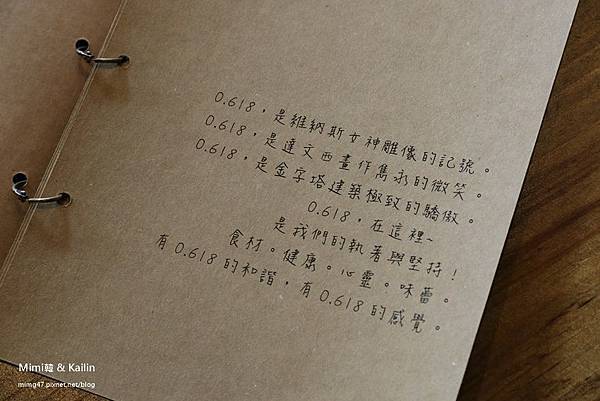 0.618，是維納斯女神雕像的記號。
0.618，是達文西畫作雋永的微笑。
0.618，是金字塔建築極致的驕傲。
0.618，在這裡~
是我們的執著與堅持！
食材。健康。心靈。味蕾。
有0.618的和諧，有0.618的感覺。
Mimi韓 & Kailin
mimg47.pixnet.net/blog